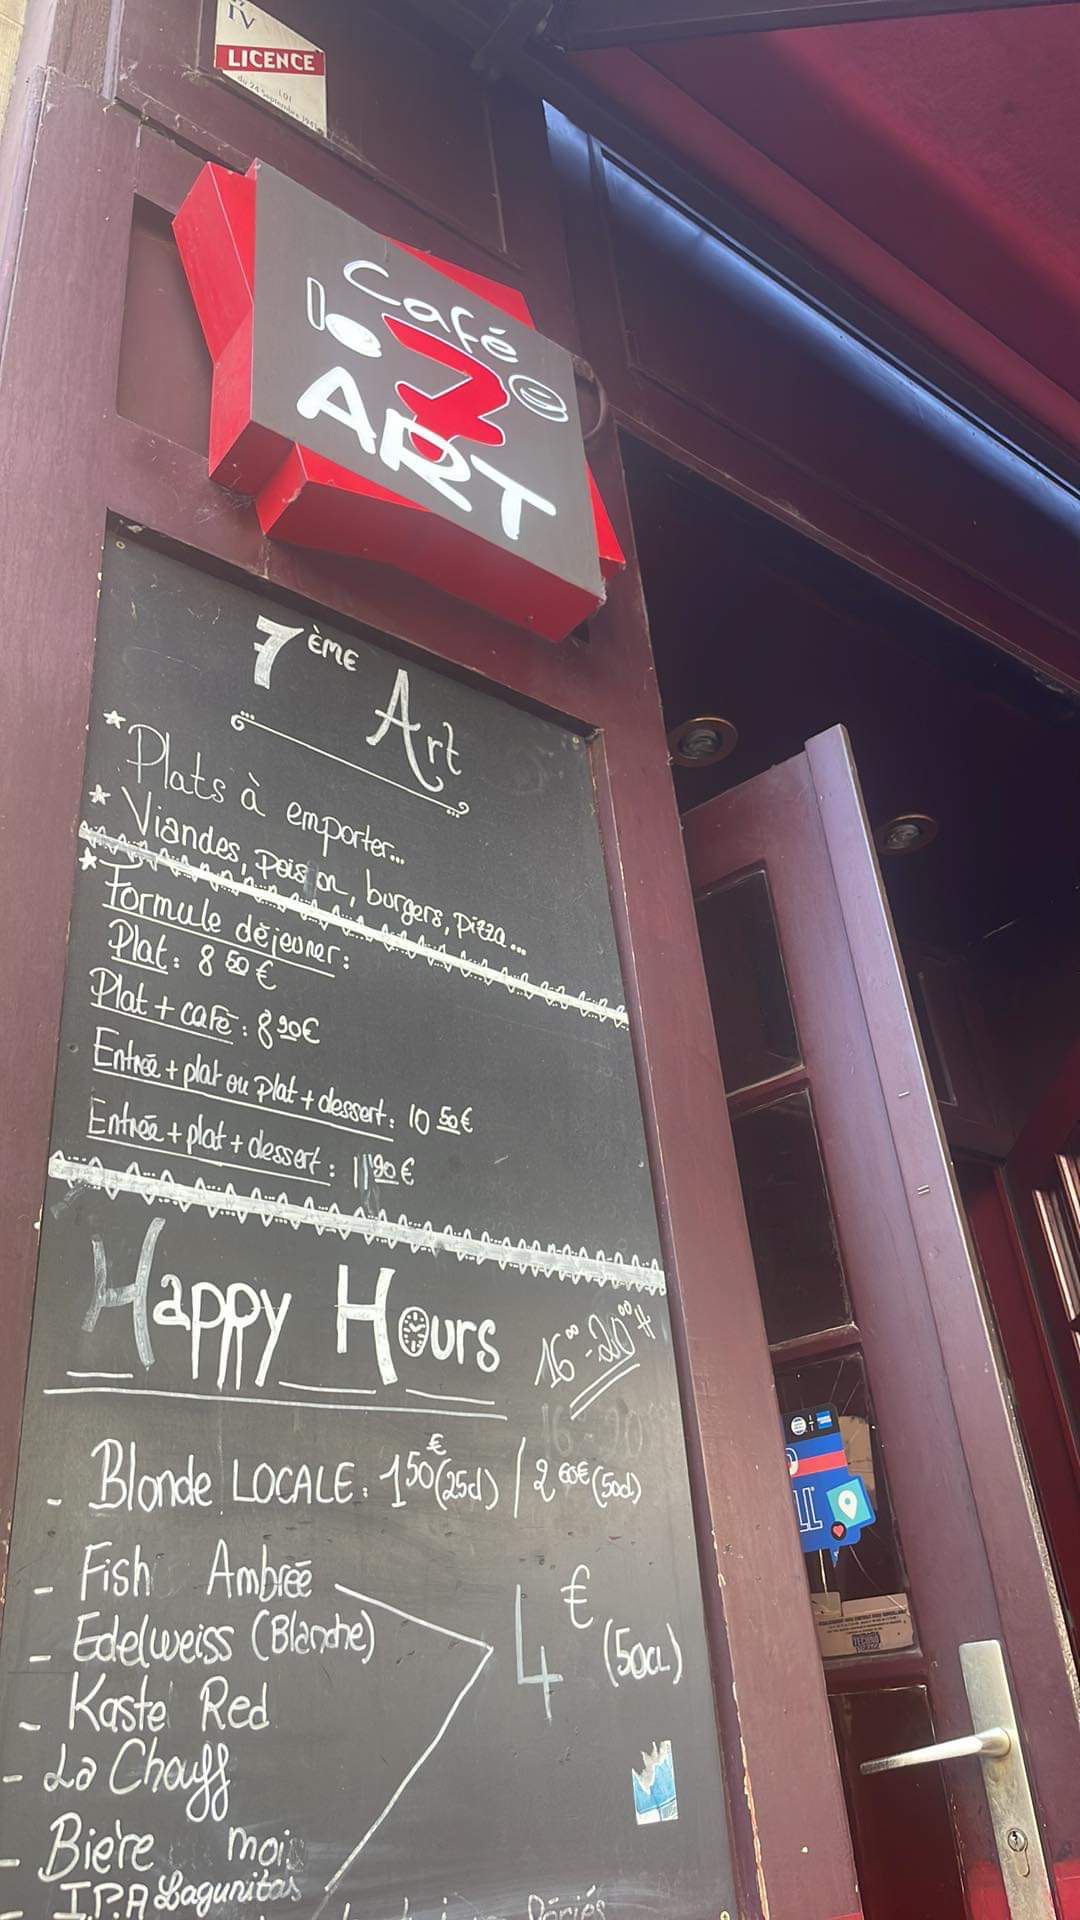 IV
LICENCE
LOI
du 24 Septembre 1941
Café
le 7e
ART
7ème Art
* Plats à emporter...
* Viandes, poisson, burgers, pizza...
* Formule déjeuner:
Plat: 8 50 €
Plat + café: 8 90 €
Entrée + plat ou Plat + dessert: 10 50 €
Entrée + plat + dessert: 11 90 €
Happy Hours 16°° - 20°° H
- Blonde LOCALE: 1 50 € (25cl) / 2 60 € (50cl)
- Fish Ambrée
- Edelweiss (Blanche) 4 € (50cl)
- Kaste Red
- La Chouff
- Bière moi
I.P.A Lagunitas
Périés